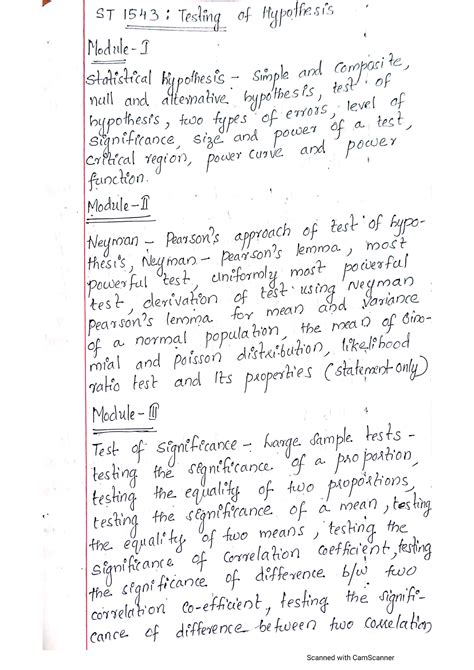 ST 1543 : Testing of Hypothesis
Module - I
Statistical hypothesis - Simple and composite,
null and alternative hypothesis, test of
hypothesis, two types of errors, level of
significance, size and power of a test,
critical region, power curve and power
function.
Module - II
Neyman - Pearson's approach of test of hypo-
thesis, Neyman - Pearson's lemma, most
powerful test, uniformly most powerful
test, derivation of test using Neyman
Pearson's lemma for mean and variance
of a normal population, the mean of Bino-
mial and Poisson distribution, likelihood
ratio test and Its properties (statement only)
Module - III
Test of significance - Large sample tests -
testing the significance of a proportion,
testing the equality of two proportions,
testing the significance of a mean, testing
the equality of two means, testing the
significance of correlation coefficient, testing
the significance of difference b/w two
correlation co-efficient, testing the signifi-
cance of difference between two correlation
Scanned with CamScanner